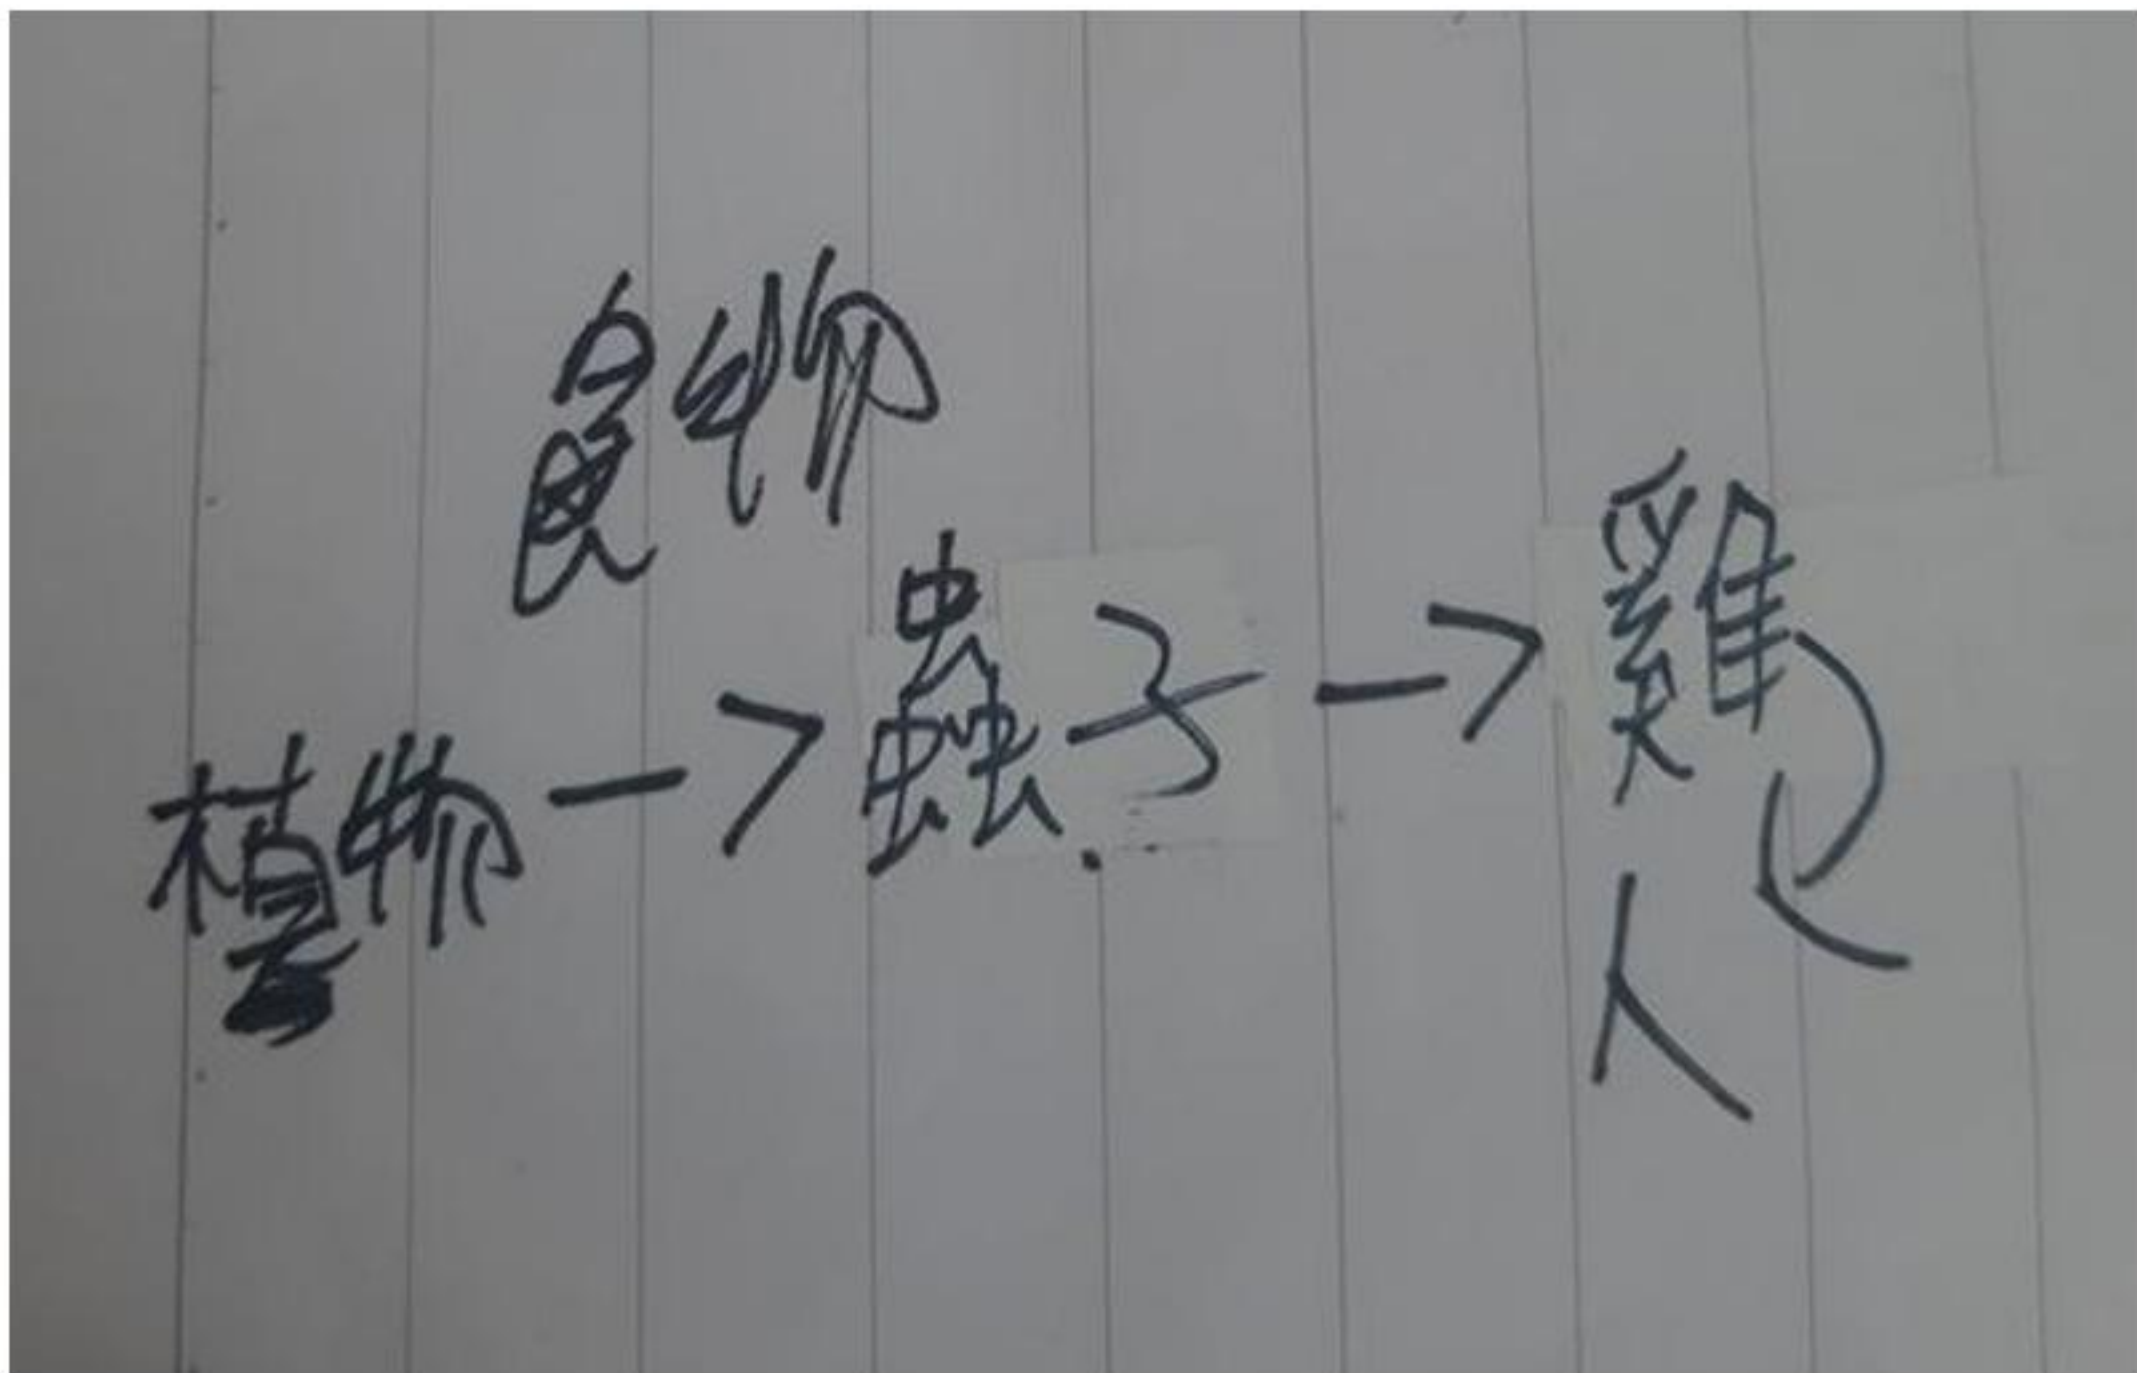 食物
植物→蟲子→雞
人